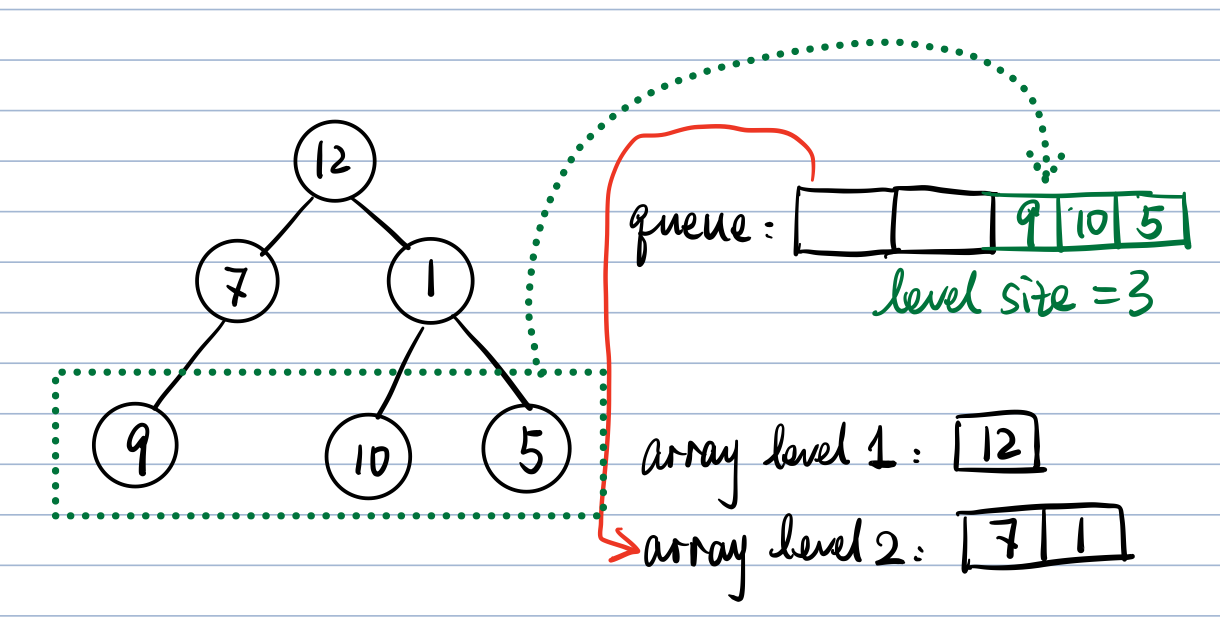 12
7 1
9 10 5
queue: 9 10 5
level size = 3
array level 1: 12
array level 2: 7 1